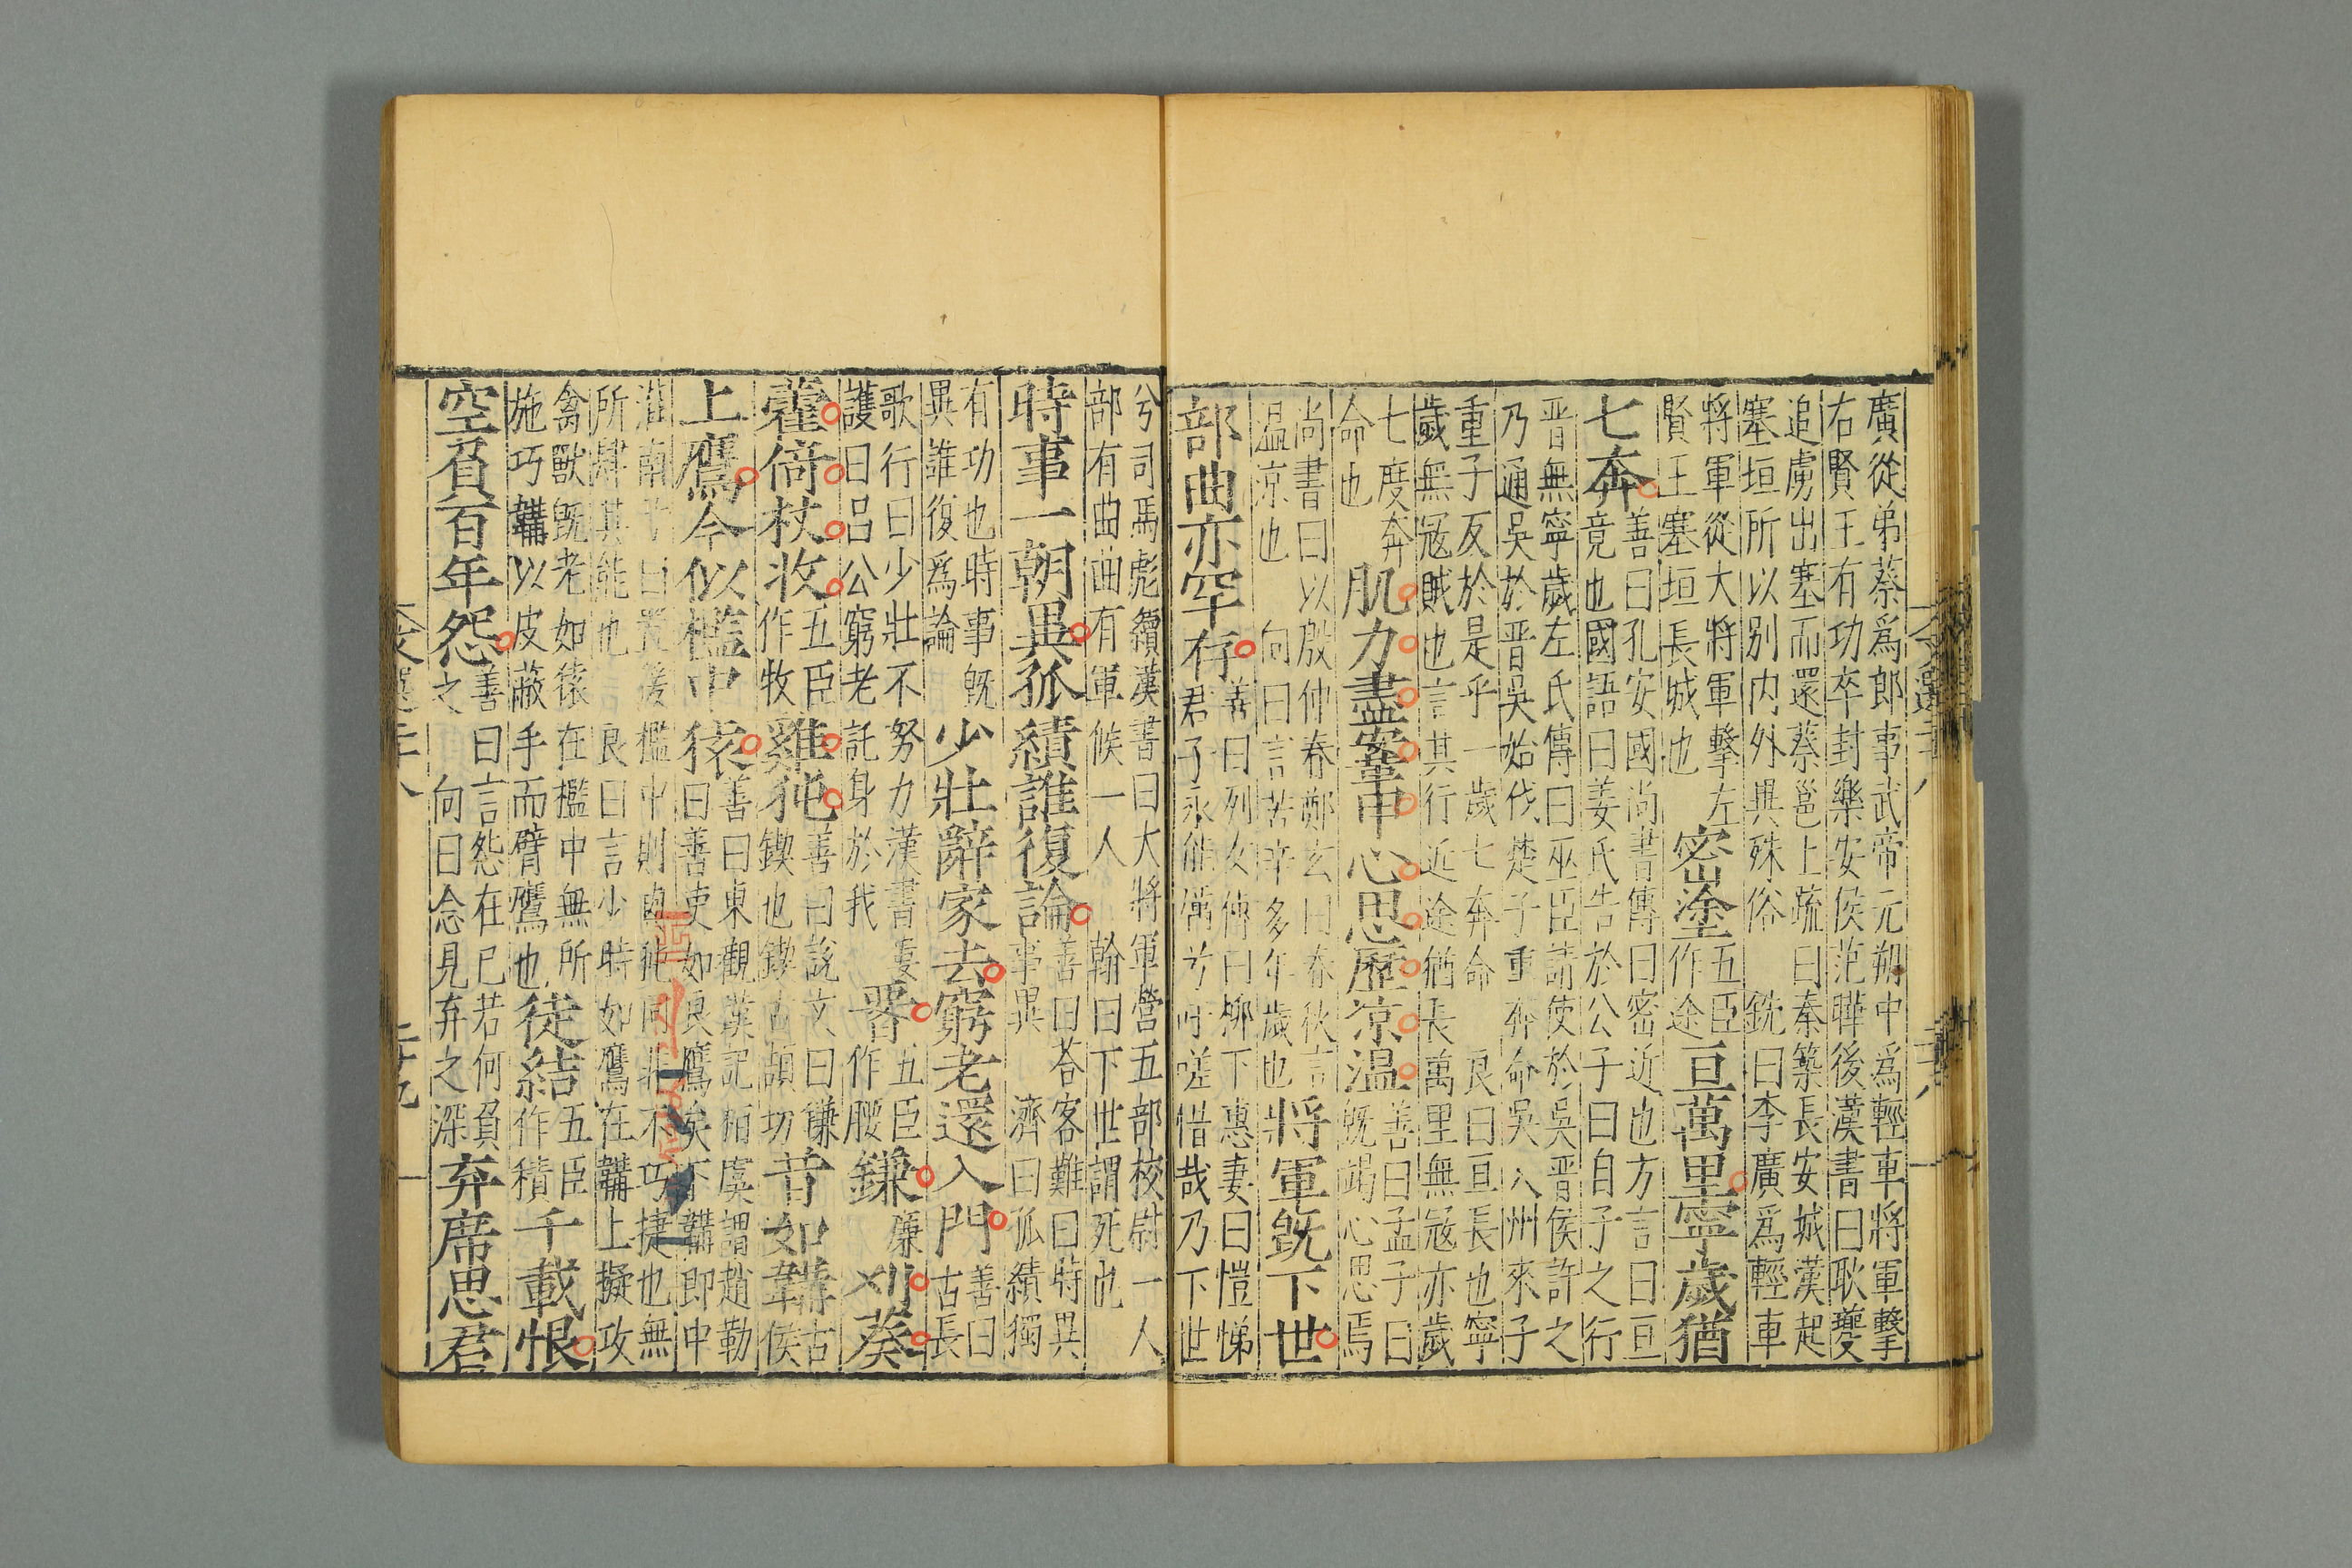 廣從弟蔡爲郎事武帝元朔中爲輕車將軍擊
右賢王有功卒封樂安侯范曄後漢書曰耿夔
追虜出塞而還蔡邕上疏曰秦築長安城漢起
塞垣所以別内外異殊俗 銑曰李廣爲輕車
將軍從大將軍擊左
賢王塞垣長城也
密塗
五臣
作途
亘萬里寧歲猶
七奔
善曰孔安國尚書傳曰密近也方言曰亘
竟也國語曰姜氏告於公子曰自子之行
晉無寧歲左氏傳曰巫臣請使於吳晉侯許之
乃通吳於晉吳始伐楚子重奔命吳入州來子
重子反於是乎一歲七奔命 良曰亘長也寧
歲無寇賊也言其行近途猶長萬里無寇亦歲
七度奔
命也
肌力盡鞌甲心思歷凉温
善曰孟子曰
既竭心思焉
尚書曰以殷仲春鄭玄曰春秋言
温凉也 向曰言苦辛多年歲也
將軍既下世
部曲亦罕存
善曰列女傳曰柳下惠妻曰愷悌
君子永能厲兮吁嗟惜哉乃下世
兮司馬彪續漢書曰大將軍營五部校尉一人
部有曲曲有軍候一人 翰曰下世謂死也
時事一朝異孤績誰復論
善曰荅客難曰時異
事異 濟曰孤績獨
有功也時事既
異誰復爲論
少壯辭家去窮老還入門
善曰
古長
歌行曰少壯不努力漢書婁
護曰呂公窮老託身於我
𦝫
五臣
作腰
鎌
廉
刈葵
藿倚杖收
五臣
作牧
雞㹠
善曰說文曰鎌
鍥也鍥古頡切
昔如韝
古
侯
上鷹今似檻中猿
善曰東觀漢記桓虞謂趙勒
曰善吏如良鷹矣下韝即中
淮南子曰置猨檻中則與㹠同非不巧捷也無
所肆其能也 良曰言少時如鷹在韝上擬攻
禽獸既老如猿在檻中無所
施巧韝以皮蔽手而臂鷹也
徒結
五臣
作積
千載恨
空負百年怨
善曰言怨在已若何負
之 向曰念見弃之深
弃席思君
文選二十八
二十九